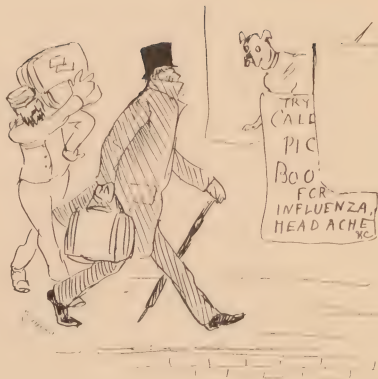 TRY
CALD
PIC
BOO
FOR
INFLUENZA,
HEADACHE